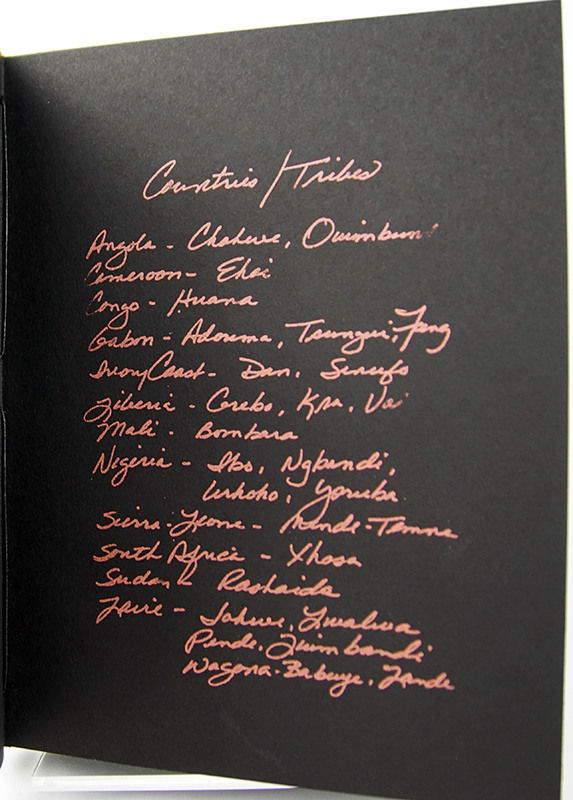 Countries / Tribes
Angola - Chokwe, Ovimbun
Cameroon - Ekoi
Congo - Huana
Gabon - Adouma, Tsungui, Fang
Ivory Coast - Dan, Senufo
Liberia - Grebo, Kra, Vai
Mali - Bombara
Nigeria - Ibo, Ngbandi,
Urhobo, Yoruba
Sierra-Leone - Mende-Temne
South Africa - Xhosa
Sudan - Rashaida
Zaire - Lwalwa
Pende,
Wagona-Babuye, Zande